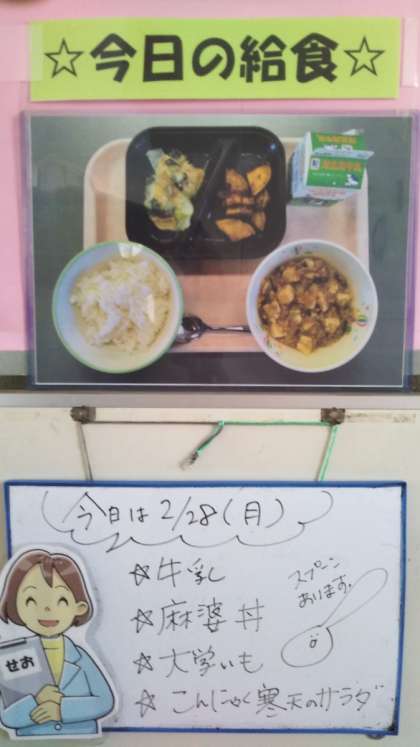 ☆今日の給食☆
今日は2/28(月)
☆牛乳
☆麻婆丼
☆大学いも
☆こんにゃく寒天のサラダ
スプーン
あります。
せお